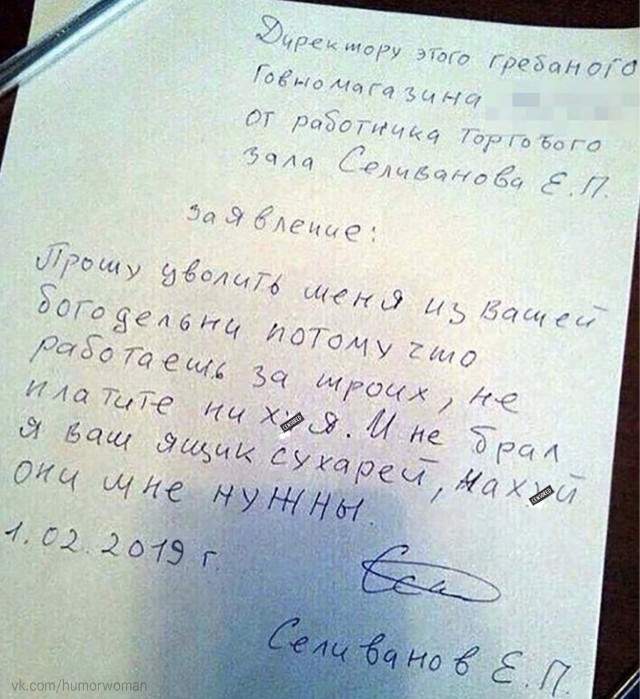 Директору этого гребаного
Говномагазина
от работника торгового
зала Селиванова Е.П.
заявление:
Прошу уволить меня из вашей
богодельни потому что
работаешь за троих, не
платите ни х я. И не брал
я ваш ящик сухарей, нах й
они мне нужны.
1.02.2019 г.
Селиванов Е.П
CENSORED
CENSORED
vk.com/humorwoman